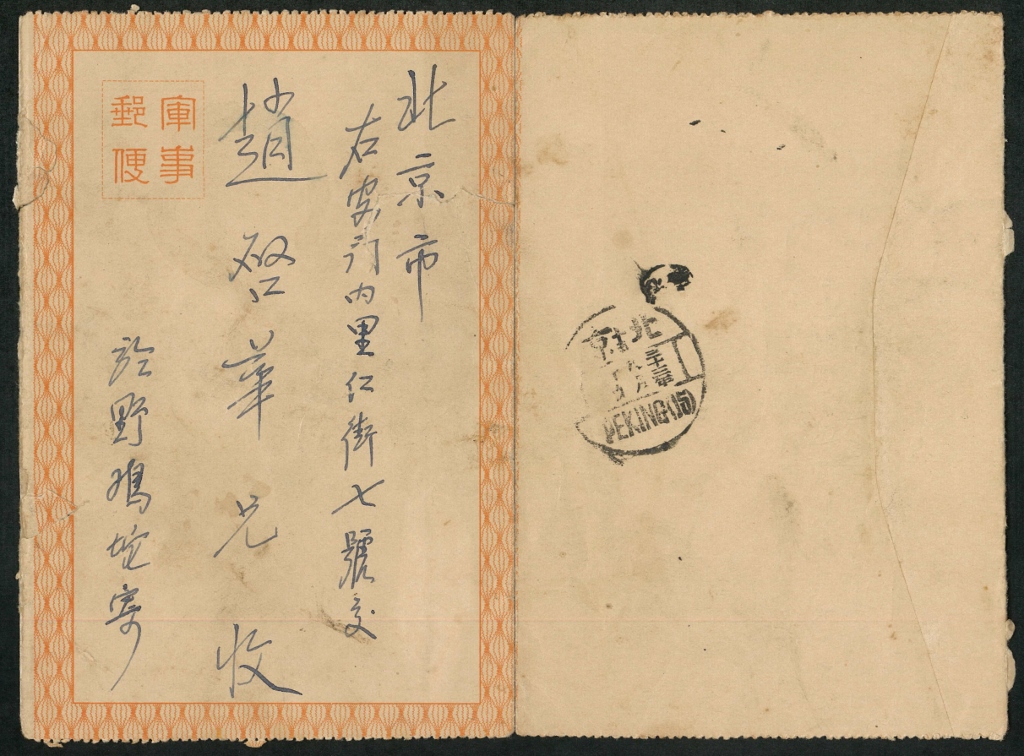 北京市
右安门内里仁街七號交
趙啓華兄 收
於野鴉坨寄
軍事
郵便
北
PEKING(15)